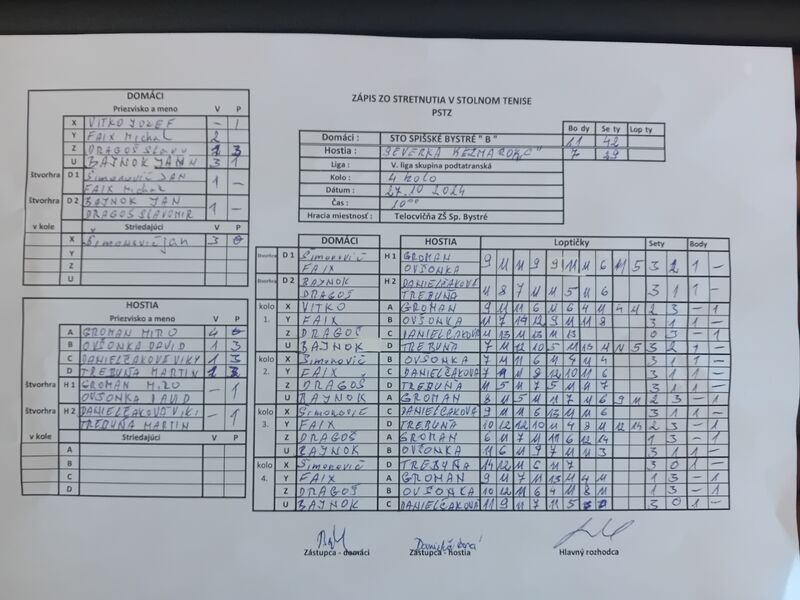 ZÁPIS ZO STRETNUTIA V STOLNOM TENISE
PSTZ
Bo dy Se ty Lop ty
Domáci : STO SPIŠSKÉ BYSTRÉ " B " 11 42
Hostia : SEVERKA KEŽMAROK 7 29
Liga : V. liga skupina podtatranská
Kolo : 4 kolo
Dátum : 27.10 2024
Čas : 10⁰⁰
Hracia miestnosť : Telocvičňa ZŠ Sp. Bystré
DOMÁCI
Priezvisko a meno V P
X VITKO JOZEF - 1
Y FAIX Michal 2
Z DRAGOŠ 3
U BAJNOK JÁN 3 1
štvorhra D 1 Šimonovič JAN
FAIX Michal 1 -
štvorhra D 2 BAJNOK JAN
DRAGOŠ SLAVOMIR 1 -
v kole Striedajúci
X Šimonovič Ján 3 0
Y
Z
U
HOSTIA
Priezvisko a meno V P
A GROMAN MIRO 4 0
B OVŠONKA DAVID 1 3
C VIKY 1 3
D TREBUŇA MARTIN 3
štvorhra H 1 GROMAN MIRO
OVŠONKA DAVID - 1
štvorhra H 2 VIKI
TREBUŇA MARTIN - 1
v kole Striedajúci
A
B
C
D
DOMÁCI HOSTIA Loptičky Sety Body
štvorhra D 1 Šimonovič H 1 GROMAN
FAIX OVŠONKA 9 11 11 9 9 11 11 6 11 5 3 2 1 -
štvorhra D 2 BAJNOK H 2 DANIELČÁKOVÁ
DRAGOŠ TREBUŇA 11 8 7 11 11 5 11 6 3 1 1 -
kolo 1. X VITKO A GROMAN 9 11 11 6 11 6 4 11 2 3 - 1
Y FAIX B OVŠONKA 11 7 12 9 11 11 8 3 1 1 -
Z DRAGOŠ C DANIELČAKOVA 11 13 11 13 11 13 0 3 - 1
U BAJNOK D TREBUŇA 7 11 12 10 5 11 4 11 5 3 2 1 -
kolo 2. X Šimonovič B OVŠONKA 7 11 11 6 3 1 1 -
Y FAIX C DANIELČAKOVA 11 8 12 10 11 6 3 1 1 -
Z DRAGOŠ D TREBUŇA 11 5 11 7 5 11 11 7 3 1 1 -
U BAJNOK A GROMAN 8 11 5 11 11 7 11 6 9 11 2 3 - 1
kolo 3. X Šimonovič C DANIELČAKOVA 9 11 11 6 13 11 11 6 3 1 1 -
Y FAIX D TREBUŇA 10 12 12 10 11 4 8 11 12 14 2 3 - 1
Z DRAGOŠ A GROMAN 6 11 7 11 11 6 12 14 1 3 - 1
U BAJNOK B OVŠONKA 11 6 11 9 7 11 11 3 3 1 1 -
kolo 4. X Šimonovič D TREBUŇA 14 12 11 6 11 7 3 0 1 -
Y FAIX A GROMAN 9 11 7 11 13 11 4 11 1 3 - 1
Z DRAGOŠ B OVŠONKA 10 12 11 6 4 11 8 11 1 3 - 1
U BAJNOK C DANIELČAKOVA 11 9 11 7 11 5 3 0 1 -
Zástupca - domáci Zástupca - hostia Hlavný rozhodca